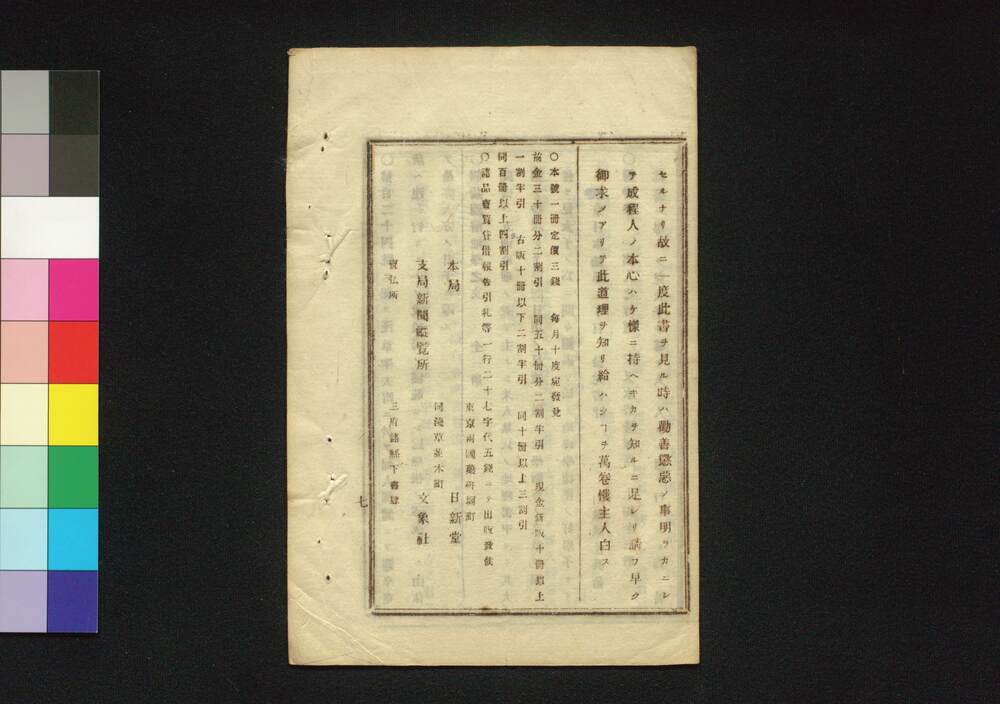 セルナリ故ニ一度此書ヲ見ル時ハ勸善懲惡ノ事明ラカニシ
テ成程人ノ本心ハケ樣ニ持ヘキカヲ知ルニ足レリ請フ早ク
御求ノアリテ此道理ヲ知リ給ハンコヲ萬卷樓主人白ス
○本號一冊定價三錢 每月十度宛發兌
前金三十冊分二割引 同五十冊分二割半引 現金舊版十冊以上
一割半引 右版十冊以下二割半引 同十冊以上三割引
同百冊以上四割引
○諸品賣買貸借報告引札等一行二十七字代五錢ニテ出版發兌
東京兩國藥研堀町
本局 日新堂
同淺草並木町
支局新聞縱覽所 文象社
賣弘所 三府諸縣下書肆
七